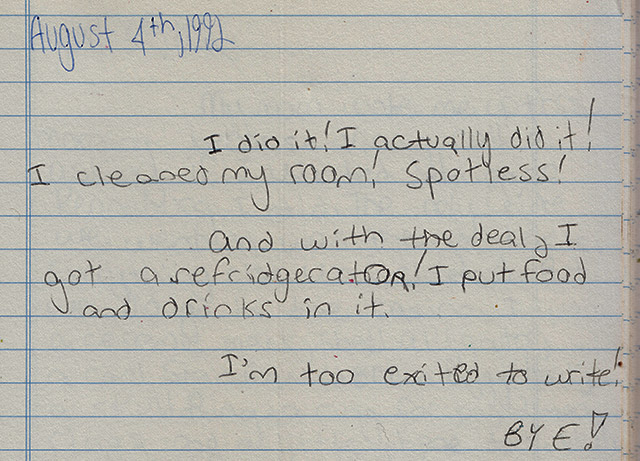 August 4th, 1992
I did it! I actually did it!
I cleaned my room! Spotless!
And with the deal, I
got a refridgerator! I put food
and drinks in it.
I'm too exited to write!
BYE!